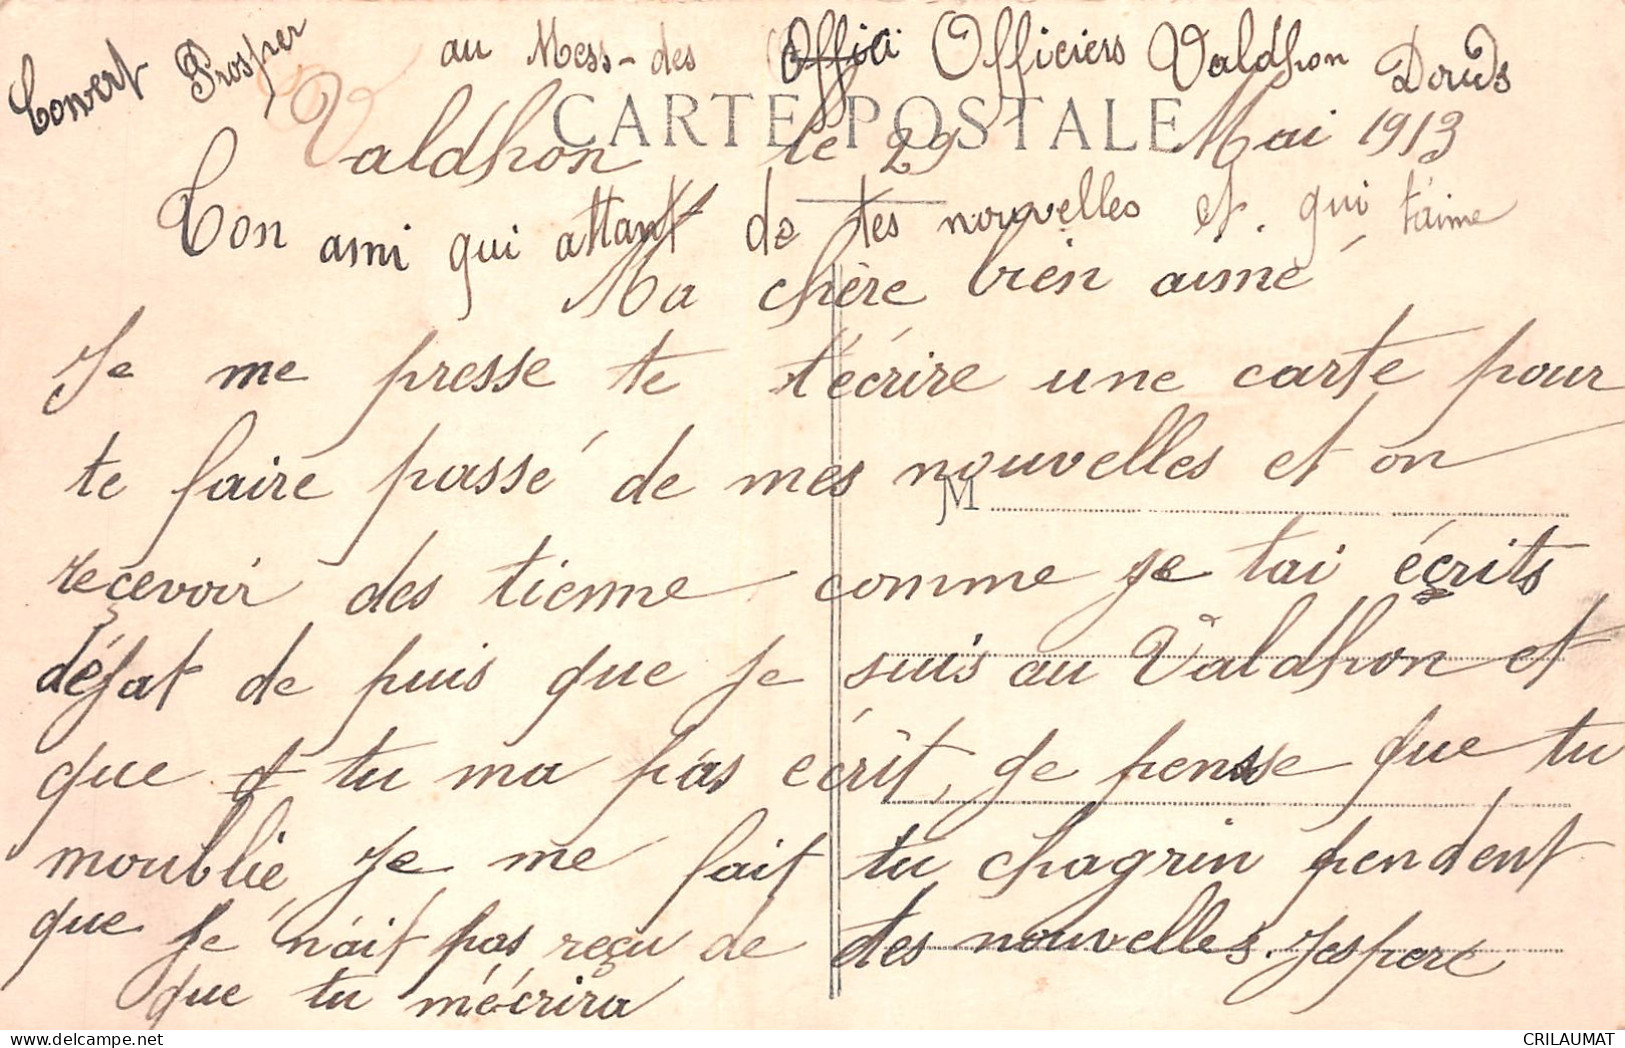 Convert Prosper au Mess-des Offici Officiers Valdhon Doubs
CARTE POSTALE
Valdhon le 29 Mai 1913
Ton ami qui attant de tes nouvelles et qui t'aime
Ma chère bien aimé
Je me presse te t'écrire une carte pour
te faire passé de mes nouvelles et on
M
recevoir des tienne comme je tai écrits
déjat de puis que je suis au Valdhon et
que tu ma pas écrit, je pensse que tu
moublie, Je me fait tu chagrin pendent
que je n'ait pas reçu de des nouvelles. Jespere
que tu m'écrira
CRILAUMAT